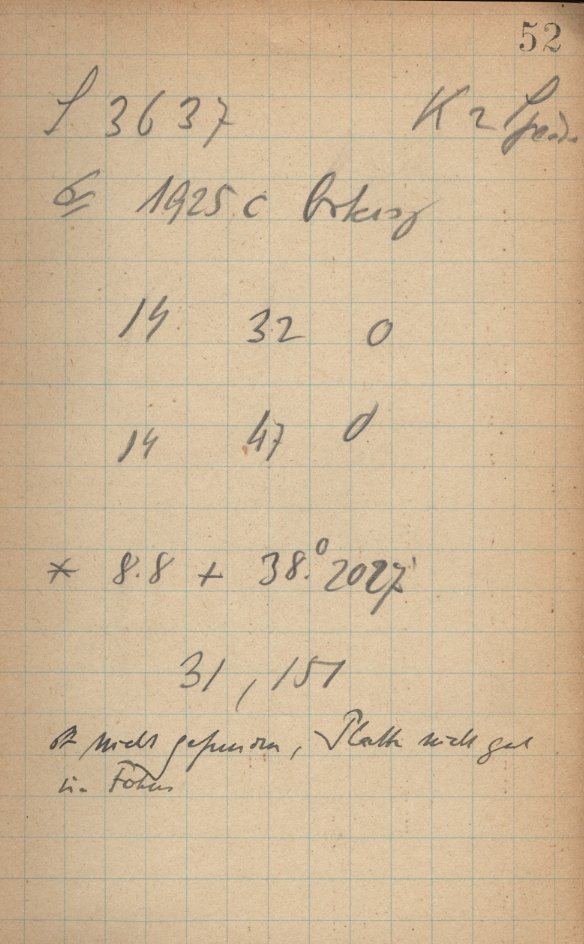 52
S 3637 K 2
1925 c Orkisz
14 32 0
14 47 0
* 8.8 + 38.° 2027
31, 151
nicht gefunden, Platte nicht gut
im Fokus